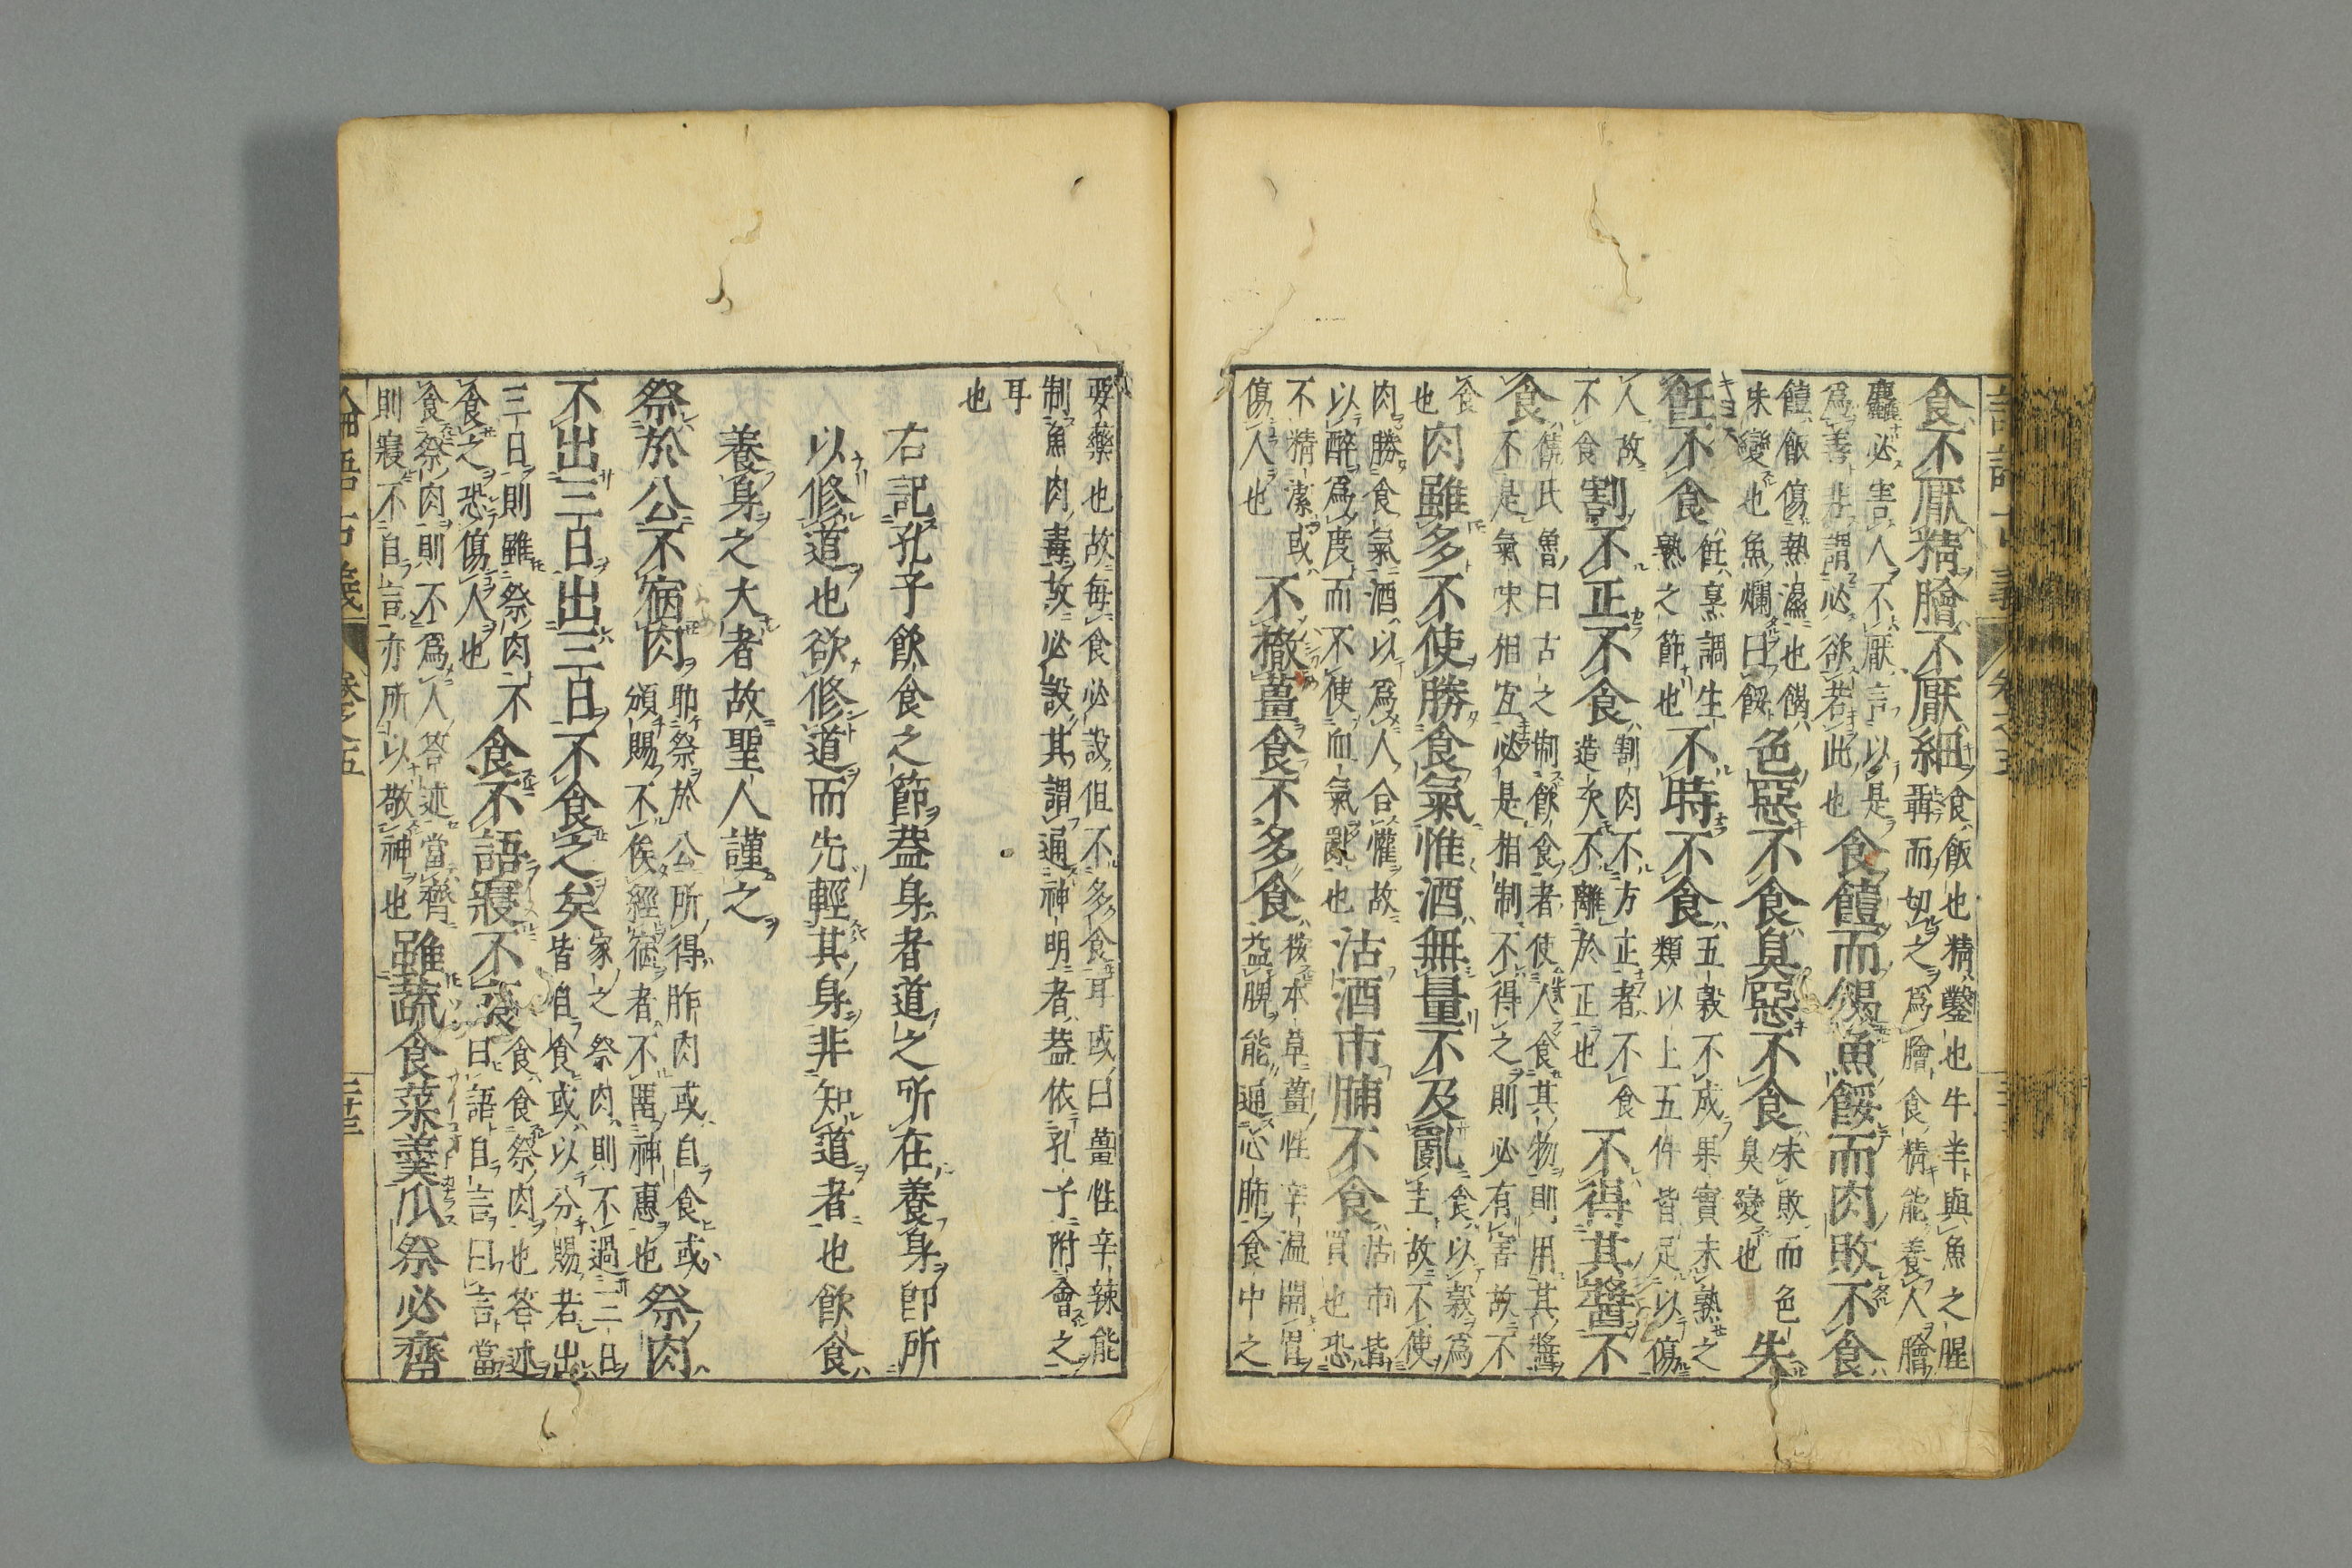 食不厭精膾不厭細食飯也精鑿也牛羊與魚之腥
聶而切之爲膾食精能養人膾
麤必害人不厭言以是
爲善非謂必欲若此也食饐而餲魚餒而肉敗不食
饐飯傷熱濕也餲
味變也魚爛曰餒色惡不食臭惡不食未敗而色
臭變也失
飪不食飪烹調生
熟之節也不時不食五穀不成果實未熟之
類以上五件皆足以傷
人故
不食割不正不食割肉不方正者不食
造次不離於正也不得其醬不
食饒氏魯曰古之制飲食者使人食其物則用其醬
不是氣味相宜必是相制不得之則必有害故不
食
也肉雖多不使勝食氣惟酒無量不及亂食以穀爲
主故不使
肉勝食氣酒以爲人合懽故
以醉爲度而不使血氣亂也沽酒市脯不食沽市皆
買也恐
不精潔或
傷人也不撤薑食不多食按本草薑性辛温開胃
益脾能通心肺食中之
要藥也故毎食必設但不多食耳或曰薑性辛辣能
制魚肉毒故必設其謂通神明者蓋依孔子附會之
耳
也
右記孔子飲食之節蓋身者道之所在養身卽所
以修道也欲修道而先輕其身非知道者也飲食
養身之大者故聖人謹之
祭於公不宿肉助祭於公所得胙肉或自食或
頒賜不俟經宿者不畱神惠也祭肉
不出三日出三日不食之矣家之祭肉則不過三日
皆自食或以分賜若出
三日則雖祭肉不
食之恐傷人也食不語寢不言食食祭肉也答述
曰語自言曰言當
食祭肉則不爲人答述當齊
則寢不自言亦所以敬神也雖蔬食菜羹瓜祭必齊
論語古義 卷之五 二十三